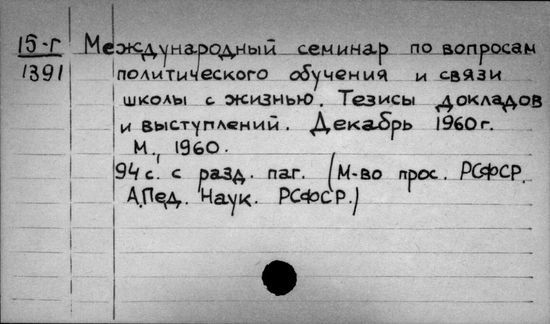 15-г Международный семинар по вопросам
1391 политического обучения и связи
школы с жизнью. Тезисы докладов
и выступлений. Декабрь 1960 г.
М., 1960.
94 с. с разд. паг. (М-во прос. РСФСР.
А.Пед. Наук. РСФСР.)